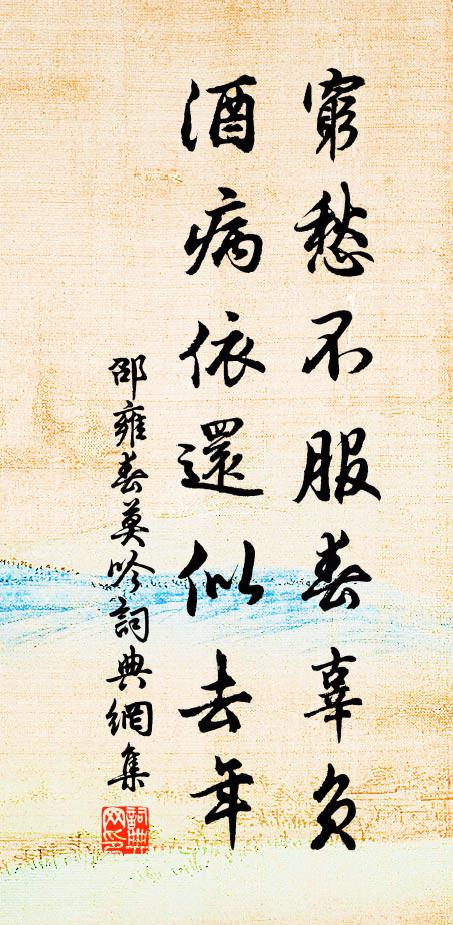 窮愁不服春辜負
酒病依還似去年
邵雍春莫吟詞典網集
詞典网印